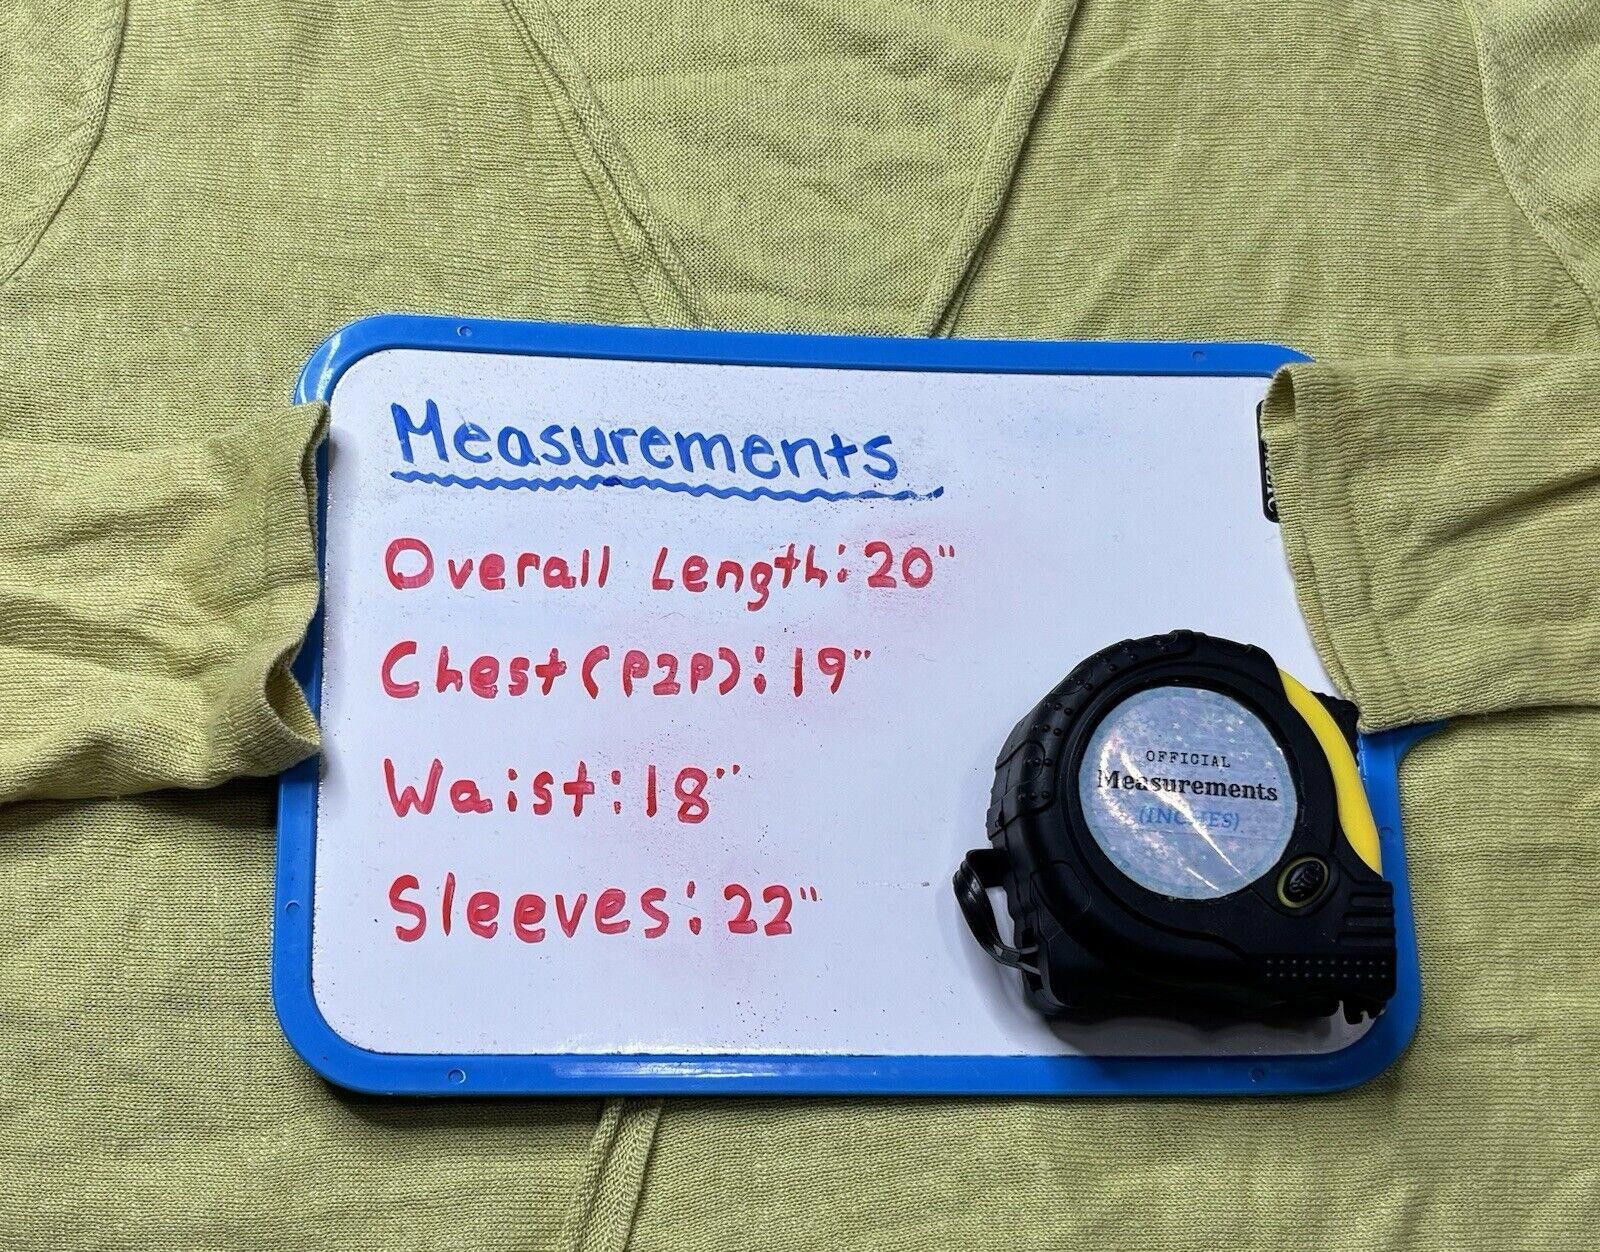 Measurements
Overall Length: 20"
Chest (P2P): 19"
Waist: 18"
Sleeves: 22"
OFFICIAL
Measurements
(INCHES)